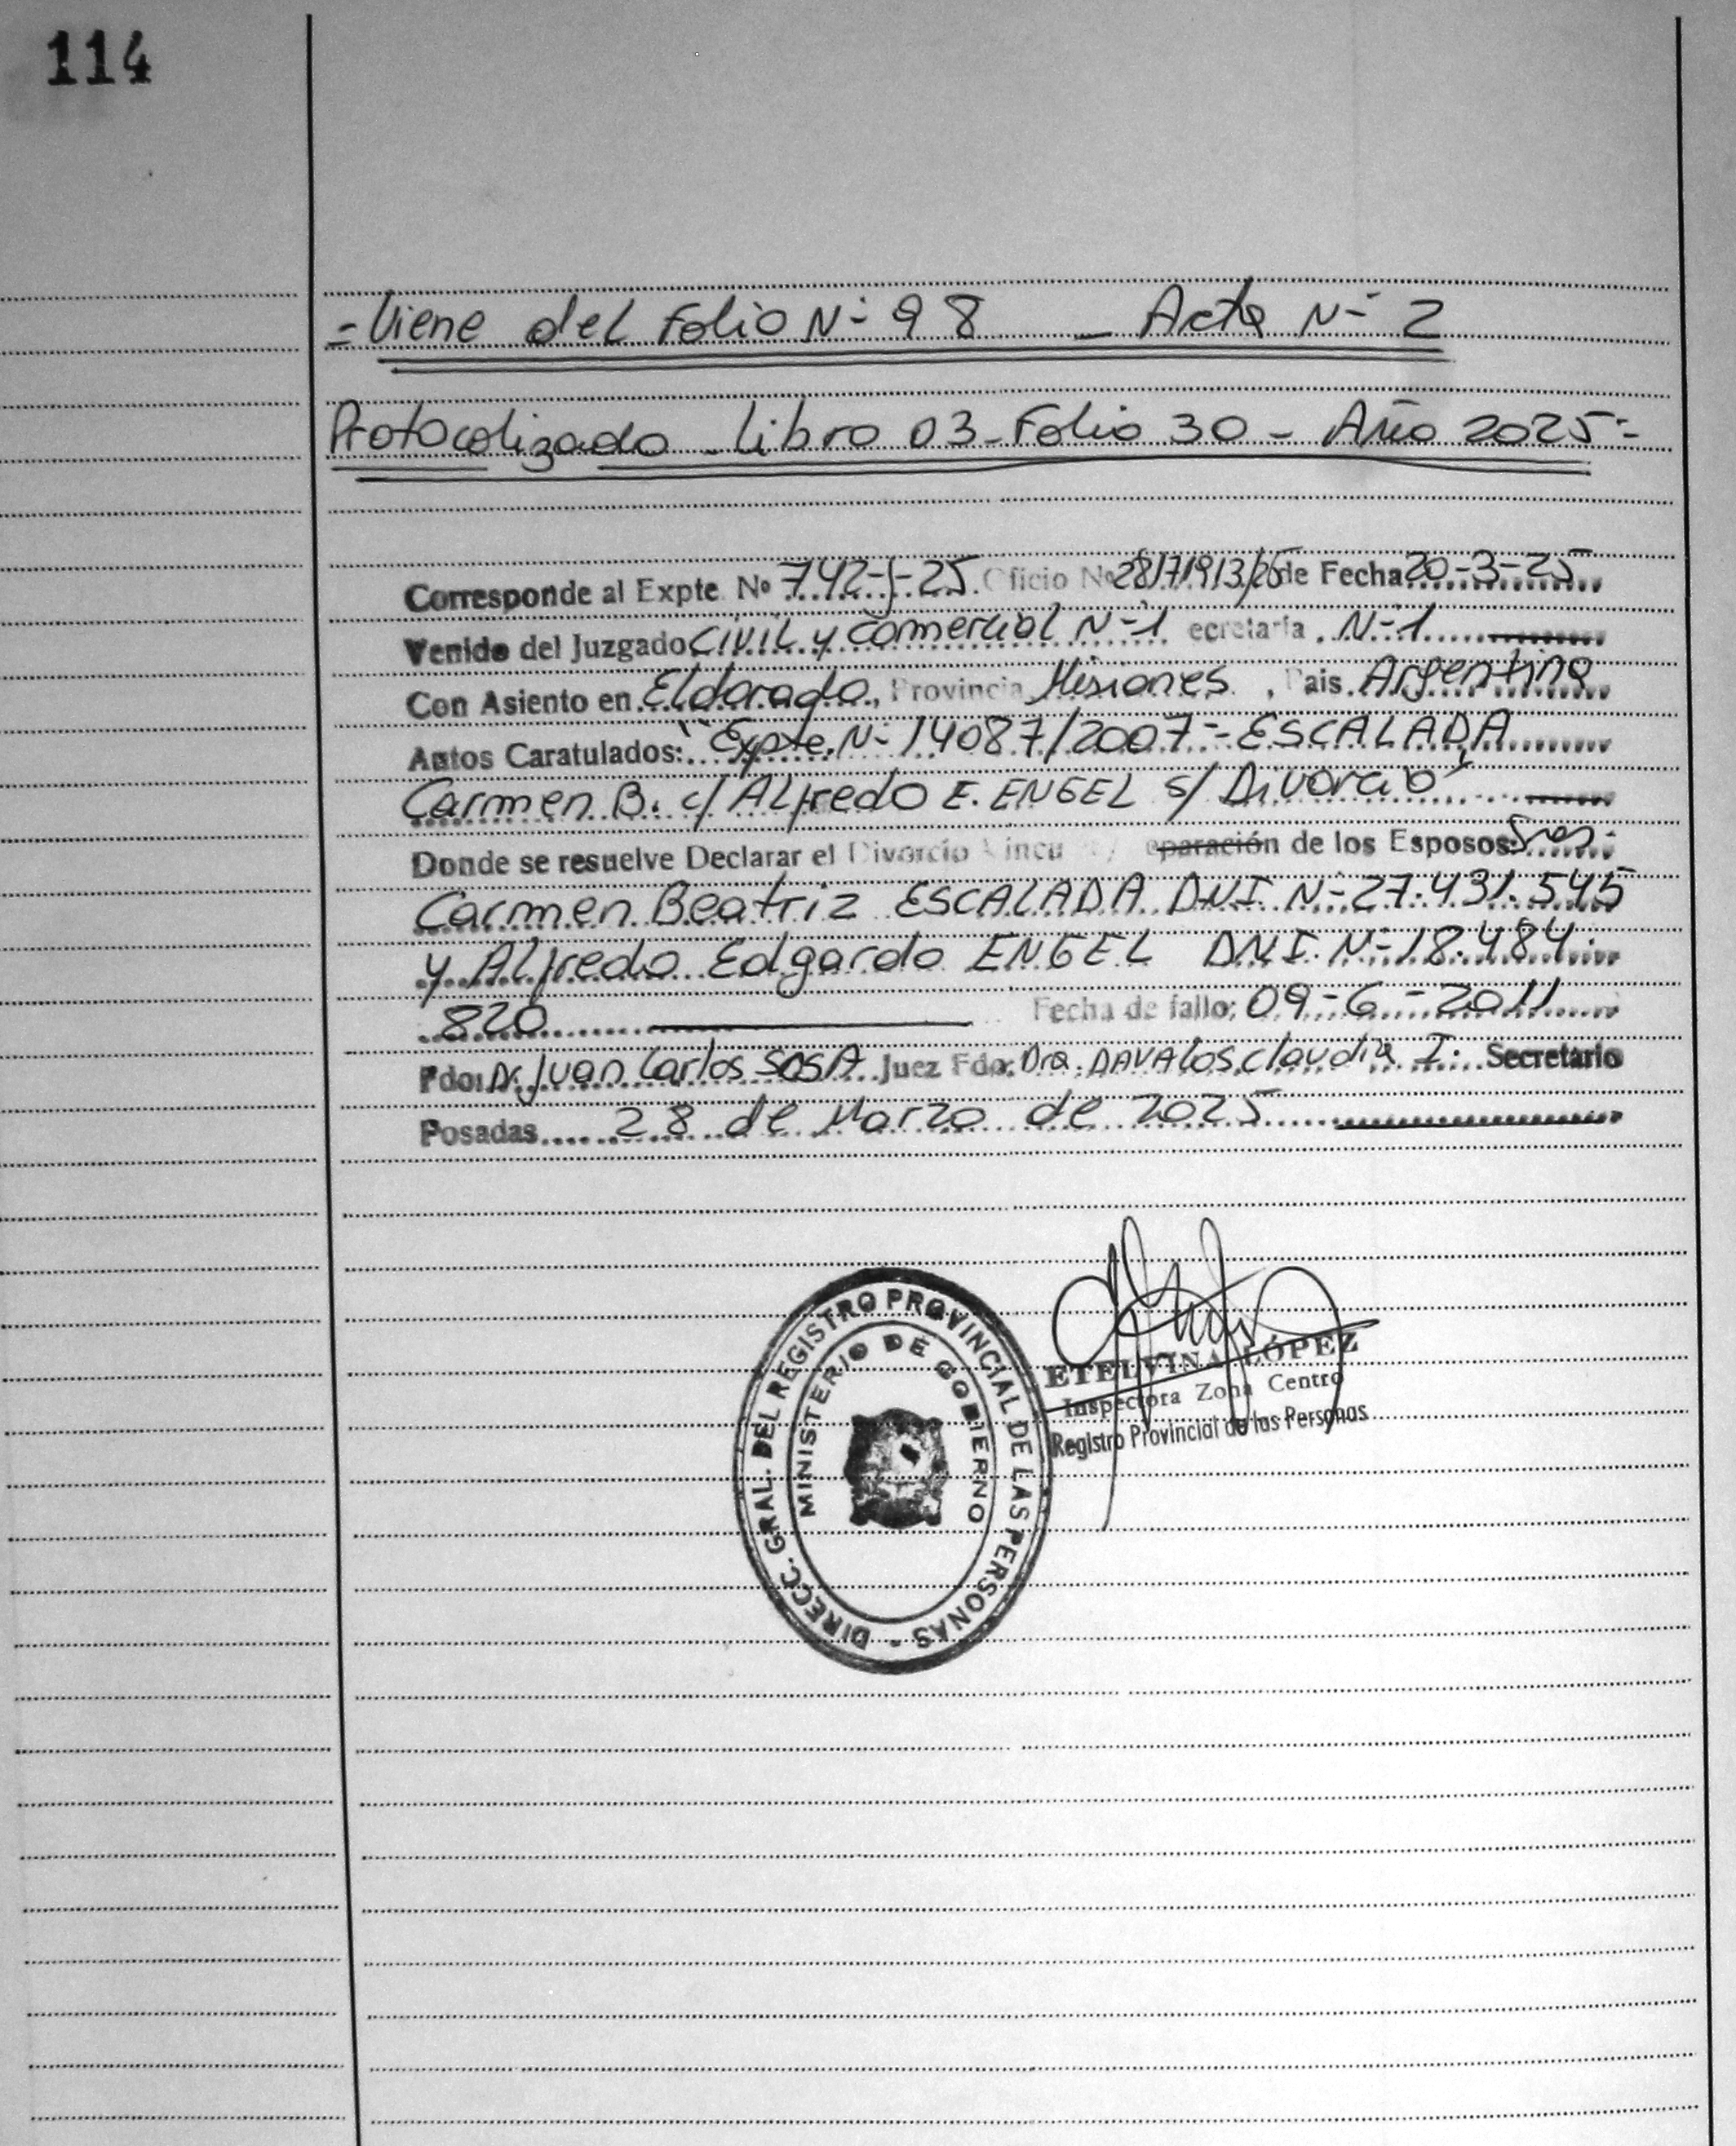 114
= Viene del Folio N- 98 _ Acta N- 2
Protocolizado _ Libro 03 - Folio 30 - Año 2025 =
Corresponde al Expte. Nº 742-J-25. Oficio Nº 28171913/25 de Fecha 20-3-25
Venido del Juzgado Civil y Comercial N-1 ecretaría N-1
Con Asiento en Eldorado, Provincia Misiones, Pais Argentina
Autos Caratulados: "Expte. N- 14087/2007 - ESCALADA
Carmen B. c/ Alfredo E. ENGEL s/ Divorcio"
Donde se resuelve Declarar el Divorcio Vincu eparación de los Esposos: Sres.
Carmen Beatriz ESCALADA DNI. N- 27.431.545
y Alfredo Edgardo ENGEL DNI. N- 18.484.
820 Fecha de fallo: 09-6-2011
Fdo: Dr Juan Carlos SOSA Juez Fdo: Dra. DAVALOS Claudia I. Secretario
Posadas 28 de Marzo de 2025
DIRECC. GRAL. DEL REGISTRO PROVINCIAL DE LAS PERSONAS -
MINISTERIO DE GOBIERNO
ETELVINA LÓPEZ
Inspectora Zona Centro
Registro Provincial de las Personas